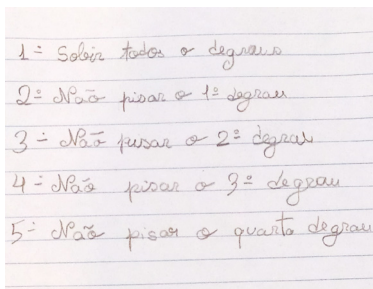 1 - Subir todos o degraus
2 - Não pisar o 1º degrau
3 - Não pisar o 2º degrau
4 - Não pisar o 3º degrau
5 - Não pisar o quarto degrau